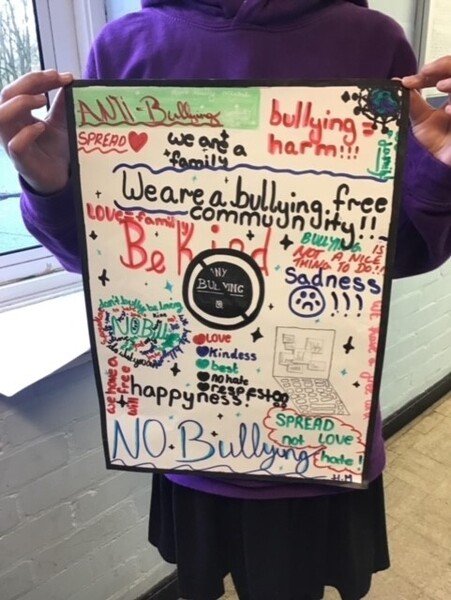 ANTi-Bullying
SPREAD
we are a
family
bullying =
harm!!!
We are a bullying free
communyity!!
LOVE=family
Be Kind
BULLYING IS
NOT A NICE
THING TO DO!!
Sadness
!!!
ANY
BULLYING
don't bully be loving
NOBully
LOVE
Kindess
best
no hate
respest
stop
happyness
we have a
free
will
NO Bullying
SPREAD
not LOVE
hate!